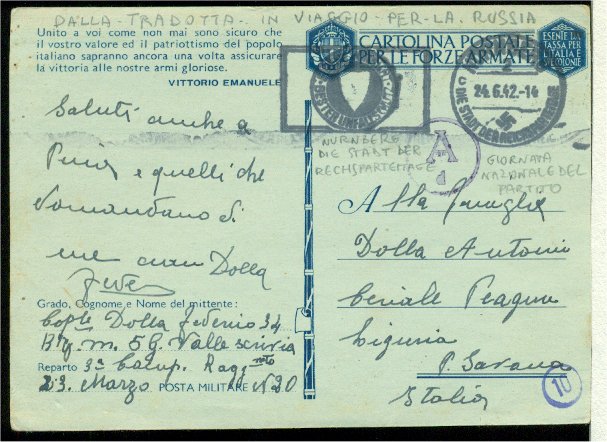 DALLA TRADOTTA - IN VIAGGIO - PER - LA RUSSIA
Unito a voi come non mai sono sicuro che
il vostro valore ed il patriottismo del popolo
italiano sapranno ancora una volta assicurare
la vittoria alle nostre armi gloriose.
VITTORIO EMANUELE
CARTOLINA POSTALE
PER LE FORZE ARMATE
ESENTE DA
TASSA PER
L'ITALIA E
COLONIE
24.6.42-14
DIE STADT DER REICHSPARTEITAGE
NURNBERG
DIE STADT DER
RECHSPARTEITAGE
A
d
GIORNATA
NAZIONALE DEL
PARTITO
Saluti anche a
e quelli che
domandano di
me Dolla
Grado, Cognome e Nome del mittente:
Dolla 34
Btg. m. 5 G. Valle scrivia
Reparto 3a Comp.
23. Marzo POSTA MILITARE N 30
Alla famiglia
Dolla Antonio
Ceriale
Liguria
P. Savona
Italia
10